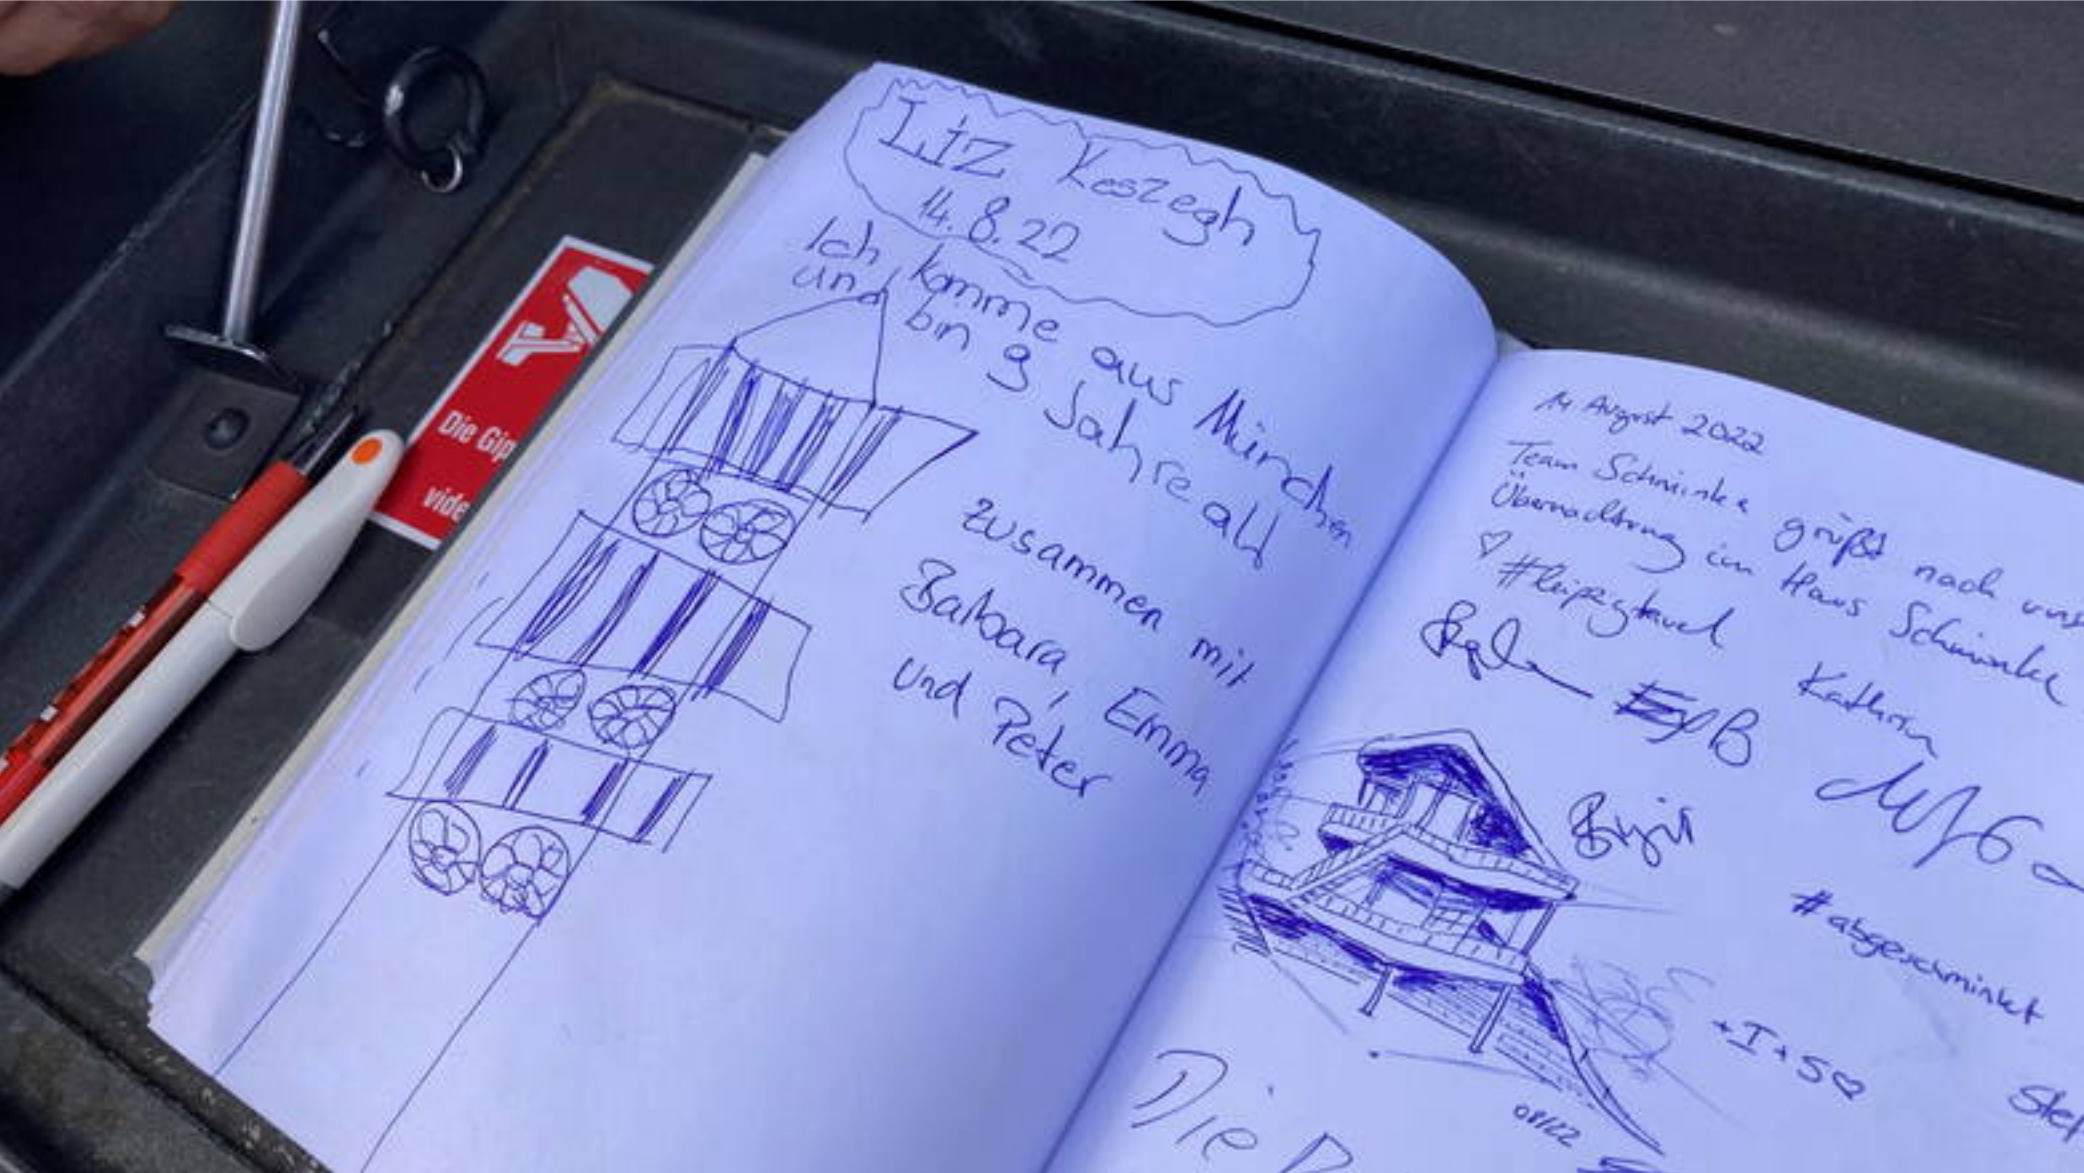 Die Gip
vide
Liz Keszegh
14.8.22
Ich komme aus München
und bin 9 Jahre alt
zusammen mit
Barbara, Emma,
und Peter
14 August 2022
Team Schminke grüßt nach uns
Übernachtung im Haus Schminke
♡ #leipzigtravel
Kathrin
Birgit
#abgeschminkt
+I+S♡
Stef
08/22
Die